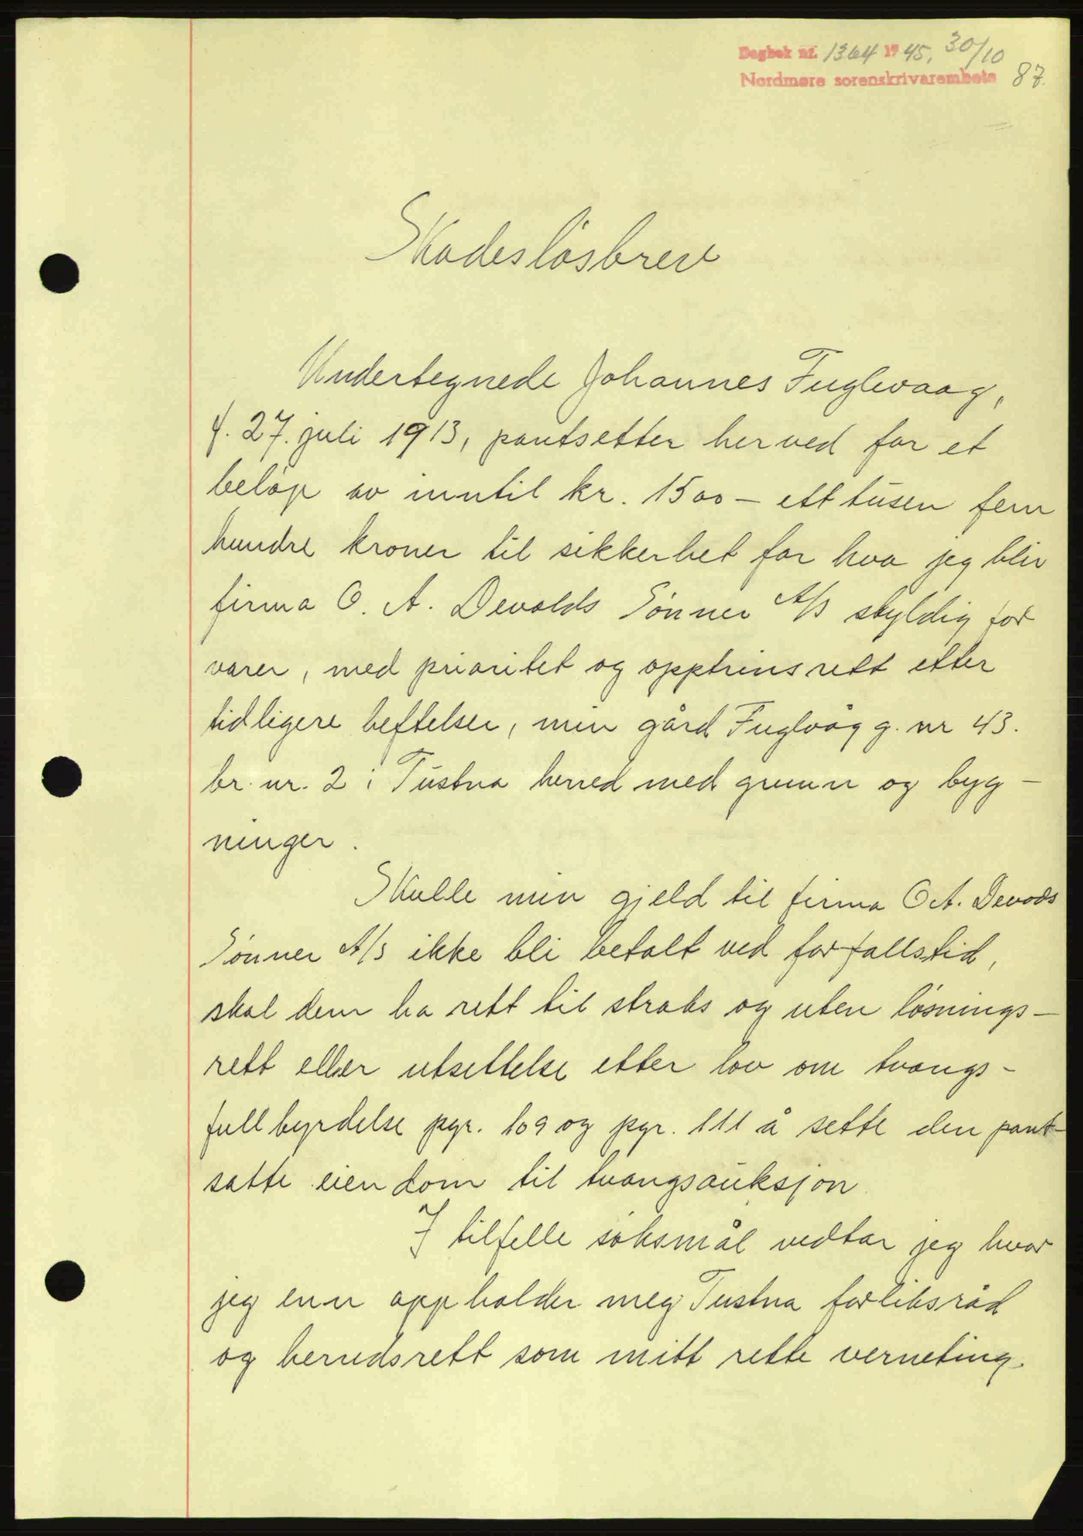 Dagbok nr. 1364 1945, 30/10
Nordmøre sorenskrivarembete 87.
Skadesløsbrev
Undertegnede Johannes Fuglevaag,
f. 27. juli 1913, pantsetter herved for et
beløp av inntil kr. 1500 – ett tusen fem
hundre kroner til sikkerhet for hva jeg blir
firma O. A. Devolds Sønner A/S skyldig for
varer, med prioritet og opptrinsrett etter
tidligere heftelser, min gård Fuglvåg g. nr 43.
br. nr. 2 i Tustna herred med grunn og byg –
ninger.
Skulle min gjeld til firma O. A. Devods
Sønner A/S ikke bli betalt ved forfallstid,
skal dem ha rett til straks og uten løsnings –
rett eller utsettelse etter lov om tvangs –
fullbyrdelse pgr. 109 og pgr. 111 å sette den pant –
satte eiendom til tvangsauksjon.
I tilfelle søksmål vedtar jeg hvor
jeg enn oppholder meg Tustna forliksråd
og herredsrett som mitt rette verneting.